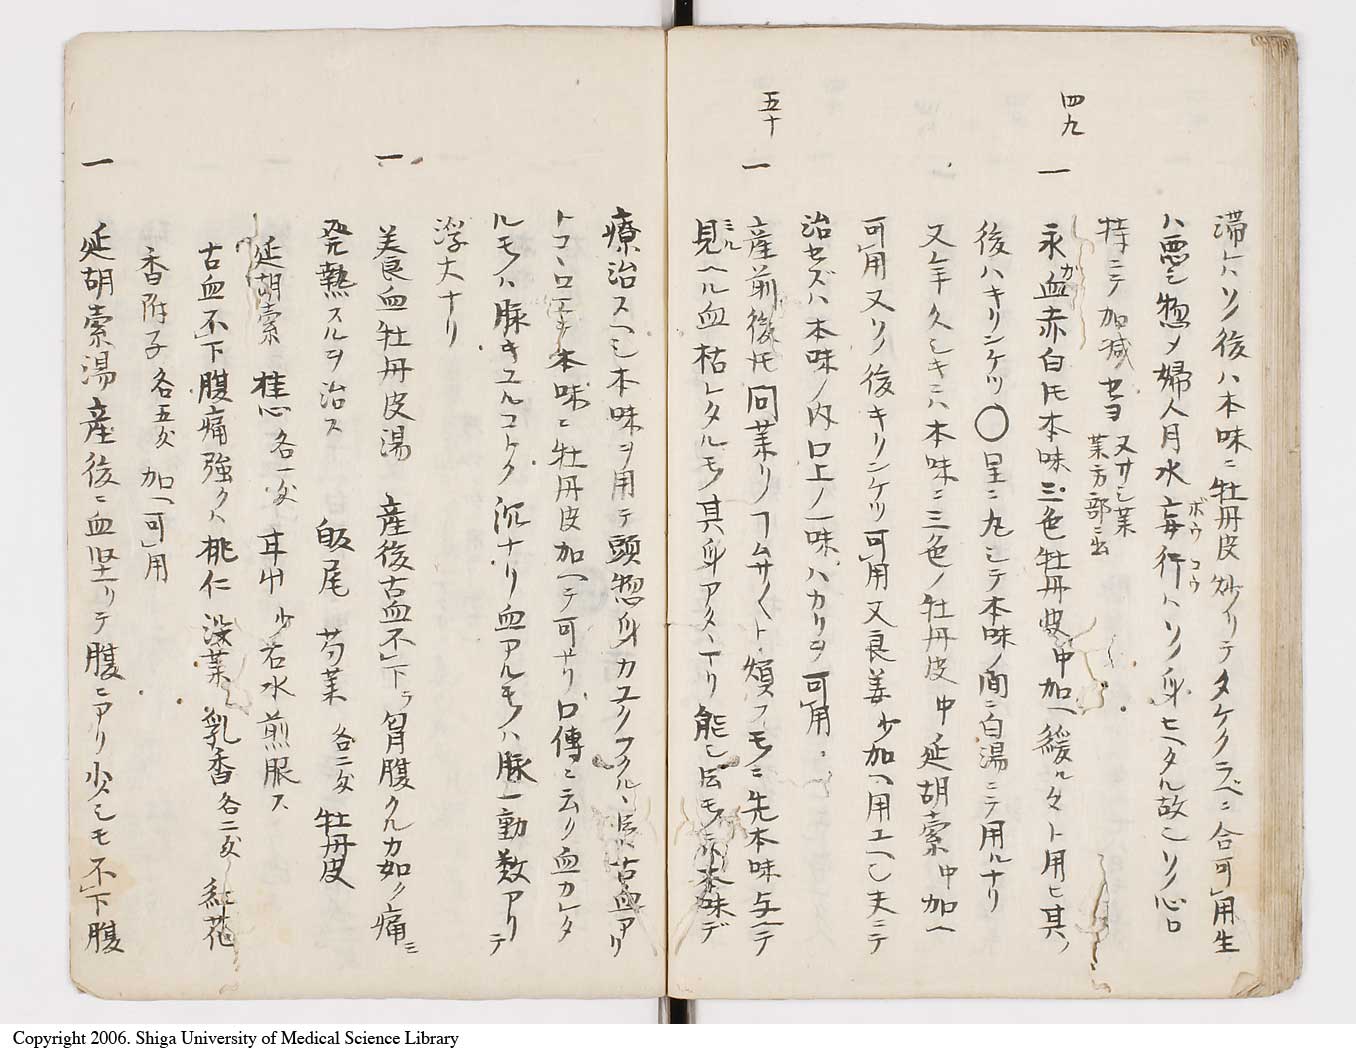 滞ハソノ後ハ本味ニ牡丹皮炒リテタケクラベニ合可用生
ハ悪シ惣〆婦人月水妄行ハソノ身ヒヘタル故ニソノ心口
ボウコウ
持ニテ加減セヨ
又サシ薬
薬方部ニ出
四九
一 永血赤白圧本味三色牡丹皮中加ヘ緩ルクト用ヒ其ノ
ガ
後ハキリンケツ〇呈ニ丸シテ本味ノ間ニ白湯ニテ用ルナリ
又年久シキニハ本味ニ三色ノ牡丹皮中延胡索中加ヘ
可用又ソノ後キリンケツ可用又良姜少加ヘ用エヘシ夫ニテ
治セズハ本味ノ内口上ノ一味ハカリヲ可用
五十
一 産前後圧同薬リノフムサくト煩フモノニ先本味与ヘテ
見ヘル血枯レタルモノ其身アタヽナリ能シ
ミル
本味デ
療治スヘシ本味ヲ用テ頭惣身カユク
古血アリ
トコヽロエヂ本味ニ牡丹皮加ヘテ可ナリ口傳ニ云リ血カレタ
ルモノハ脉キユルコトク沉ナリ血アルモノハ脉一動数アリテ
浮大ナリ
一 美良血牡丹皮湯 産後古血不下ラ胷腹クルカ如ク痛ミ
発熱スルヲ治ス 皈尾 芍薬 各二匁 牡丹皮
延胡索 桂心 各一匁 耳中 少 右水煎服ス
古血不下腹痛強クハ桃仁 没薬 乳香 各二匁 紅花
香附子 各五匁 加ヘ可用
一 延胡索湯 産後ニ血堅リテ腹ニアリ少シモ不下腹
Copyright 2006. Shiga University of Medical Science Library